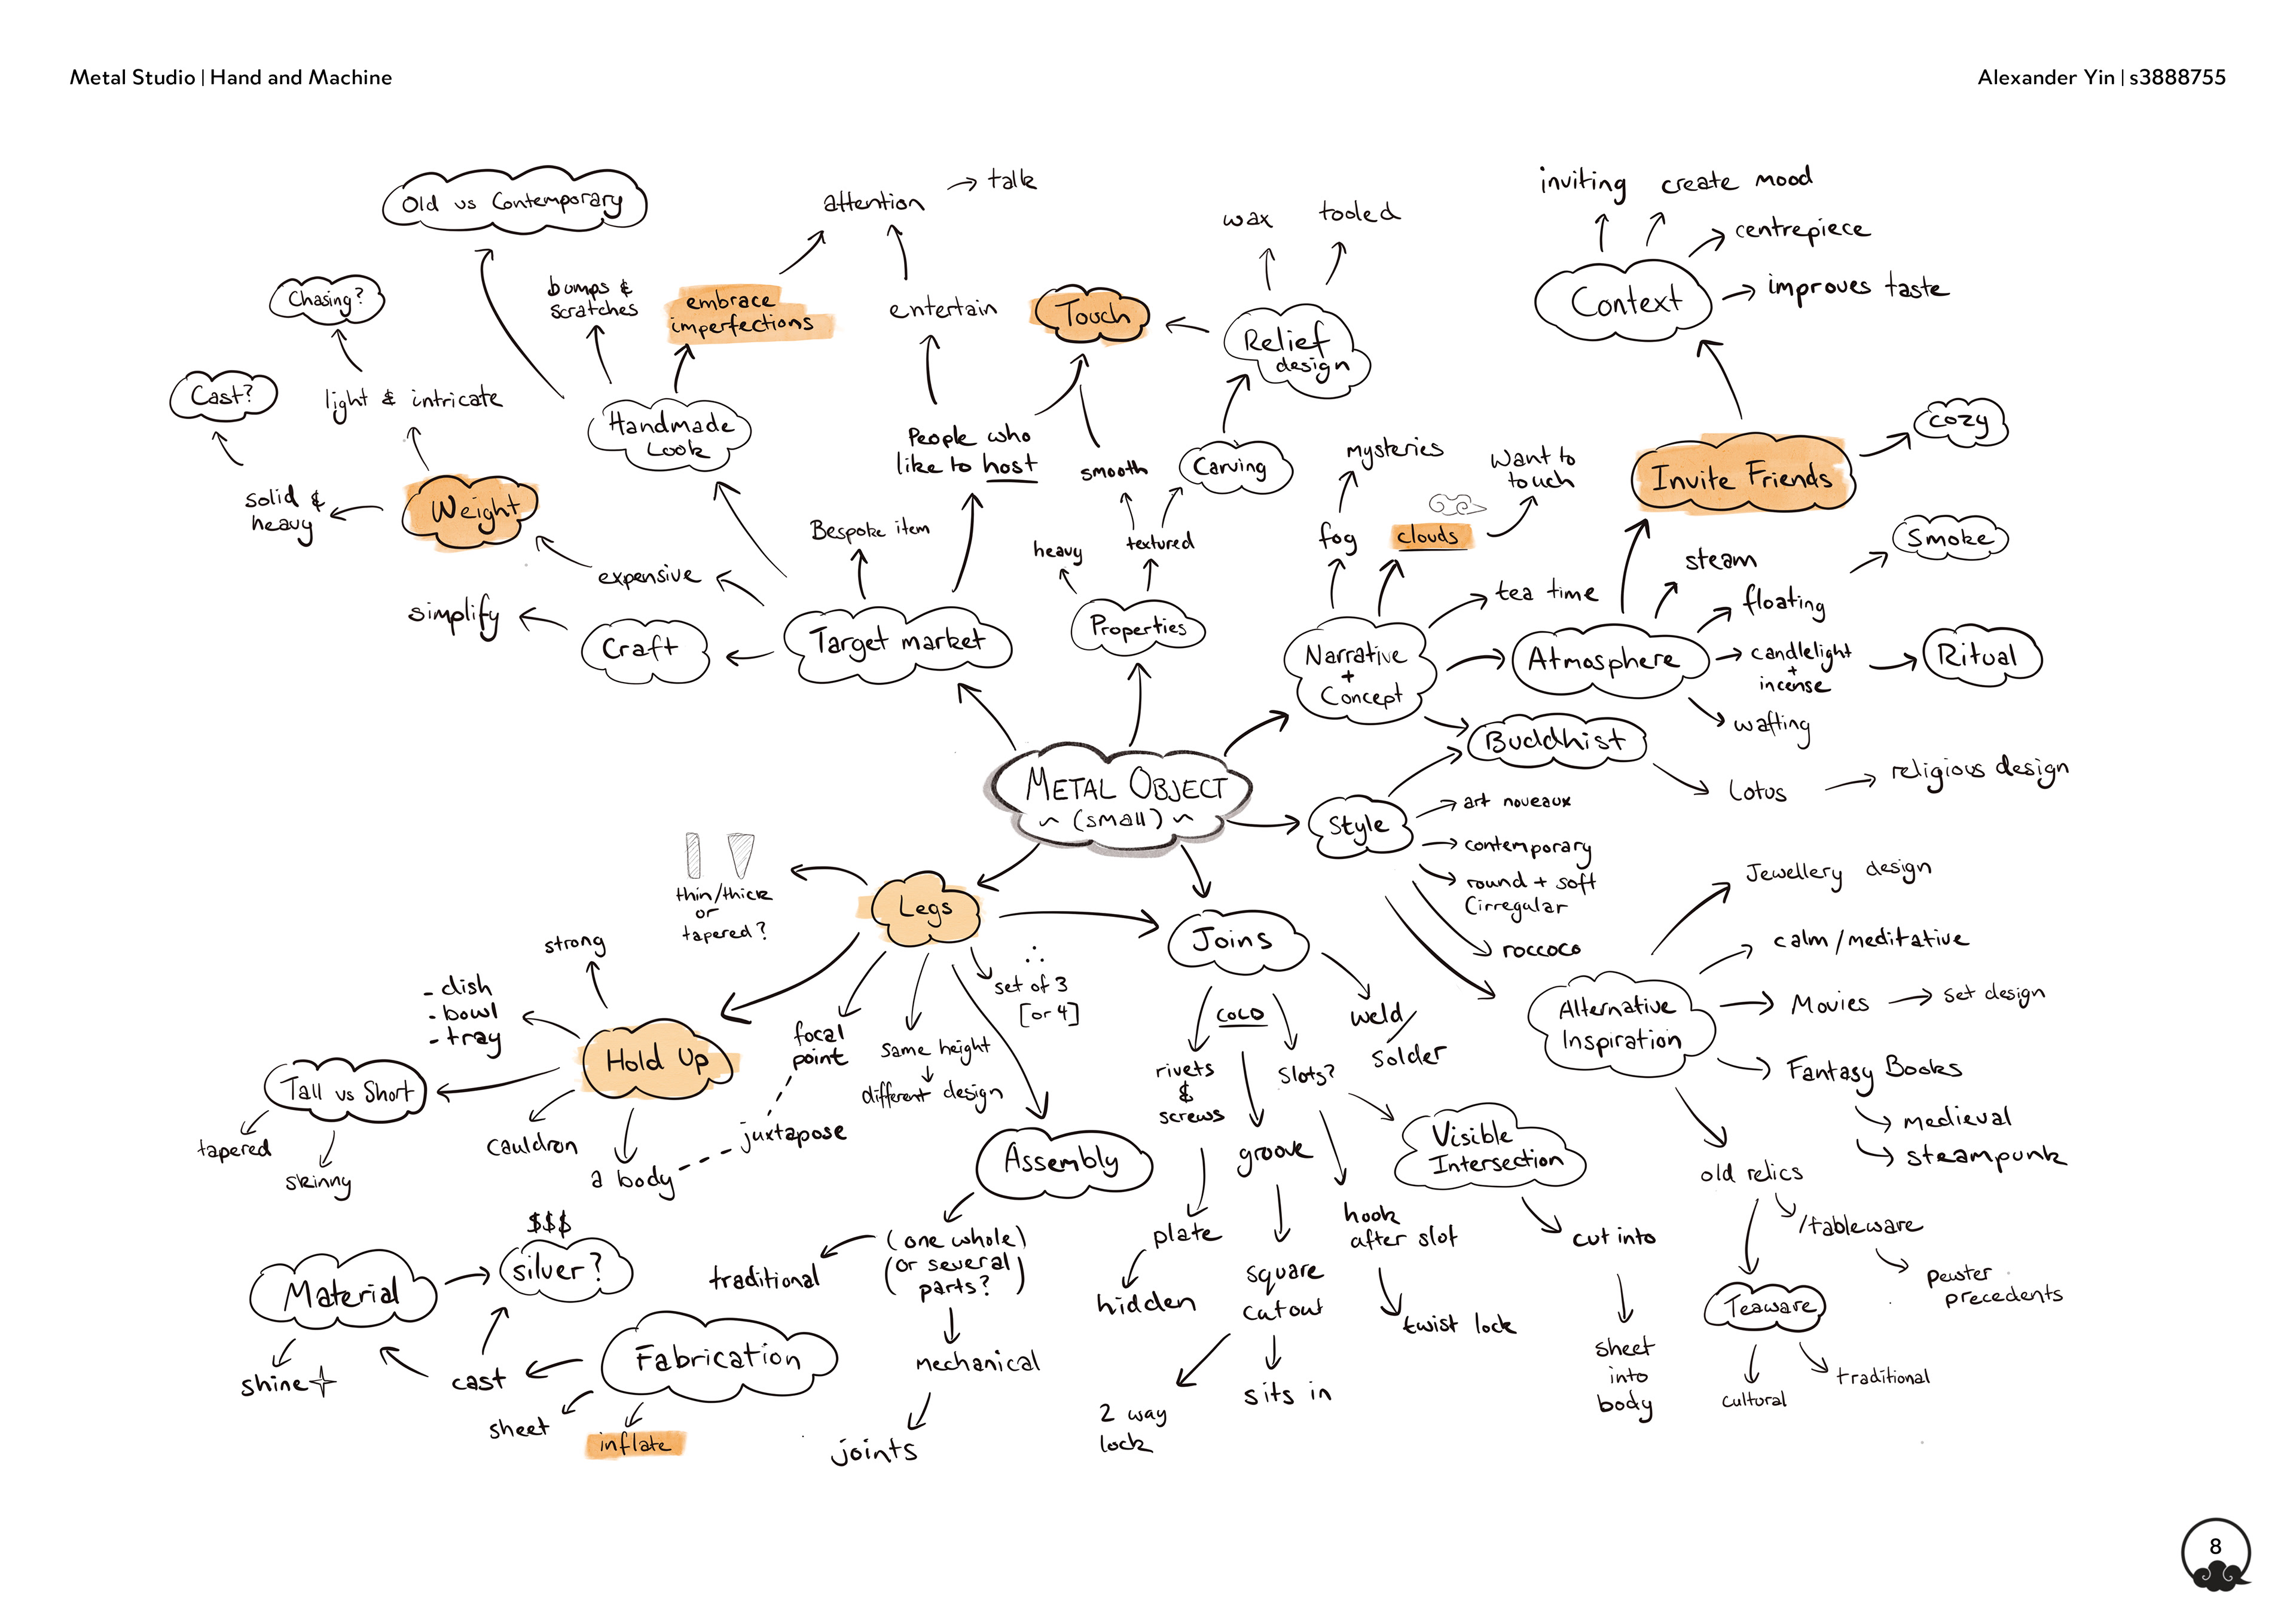 Metal Studio | Hand and Machine
Alexander Yin | s3888755
Old vs Contemporary
attention
talk
wax
tooled
inviting
create mood
centrepiece
improves taste
Context
Chasing?
bumps &
scratches
embrace
imperfections
entertain
Touch
Relief
design
Cast?
light & intricate
Handmade
Look
People who
like to host
smooth
Carving
mysteries
Want to
touch
Invite Friends
cozy
solid &
heavy
Weight
Bespoke item
heavy
textured
fog
clouds
Smoke
steam
floating
tea time
expensive
simplify
Craft
Target market
Properties
Narrative
+
Concept
Atmosphere
candlelight
+
incense
Ritual
wafting
Buddhist
Lotus
religious design
METAL OBJECT
~ (small) ~
Style
art noveaux
contemporary
round + soft
Cirregular
roccoco
thin/thick
or
tapered?
Legs
Joins
Jewellery design
calm/meditative
Movies
set design
Alternative
Inspiration
Fantasy Books
medieval
steampunk
old relics
/tableware
pewter
precedents
Teaware
cultural
traditional
strong
- dish
- bowl
- tray
Hold Up
Tall vs Short
tapered
skinny
cauldron
a body
juxtapose
focal
point
same height
different design
set of 3
[or 4]
Assembly
(one whole)
(or several
parts?)
traditional
mechanical
joints
COLD
rivets
&
screws
plate
hidden
groove
square
cutout
2 way
lock
sits in
slots?
hook
after slot
twist lock
weld/
solder
Visible
Intersection
cut into
sheet
into
body
$$$
silver?
Material
shine
cast
Fabrication
sheet
inflate
8